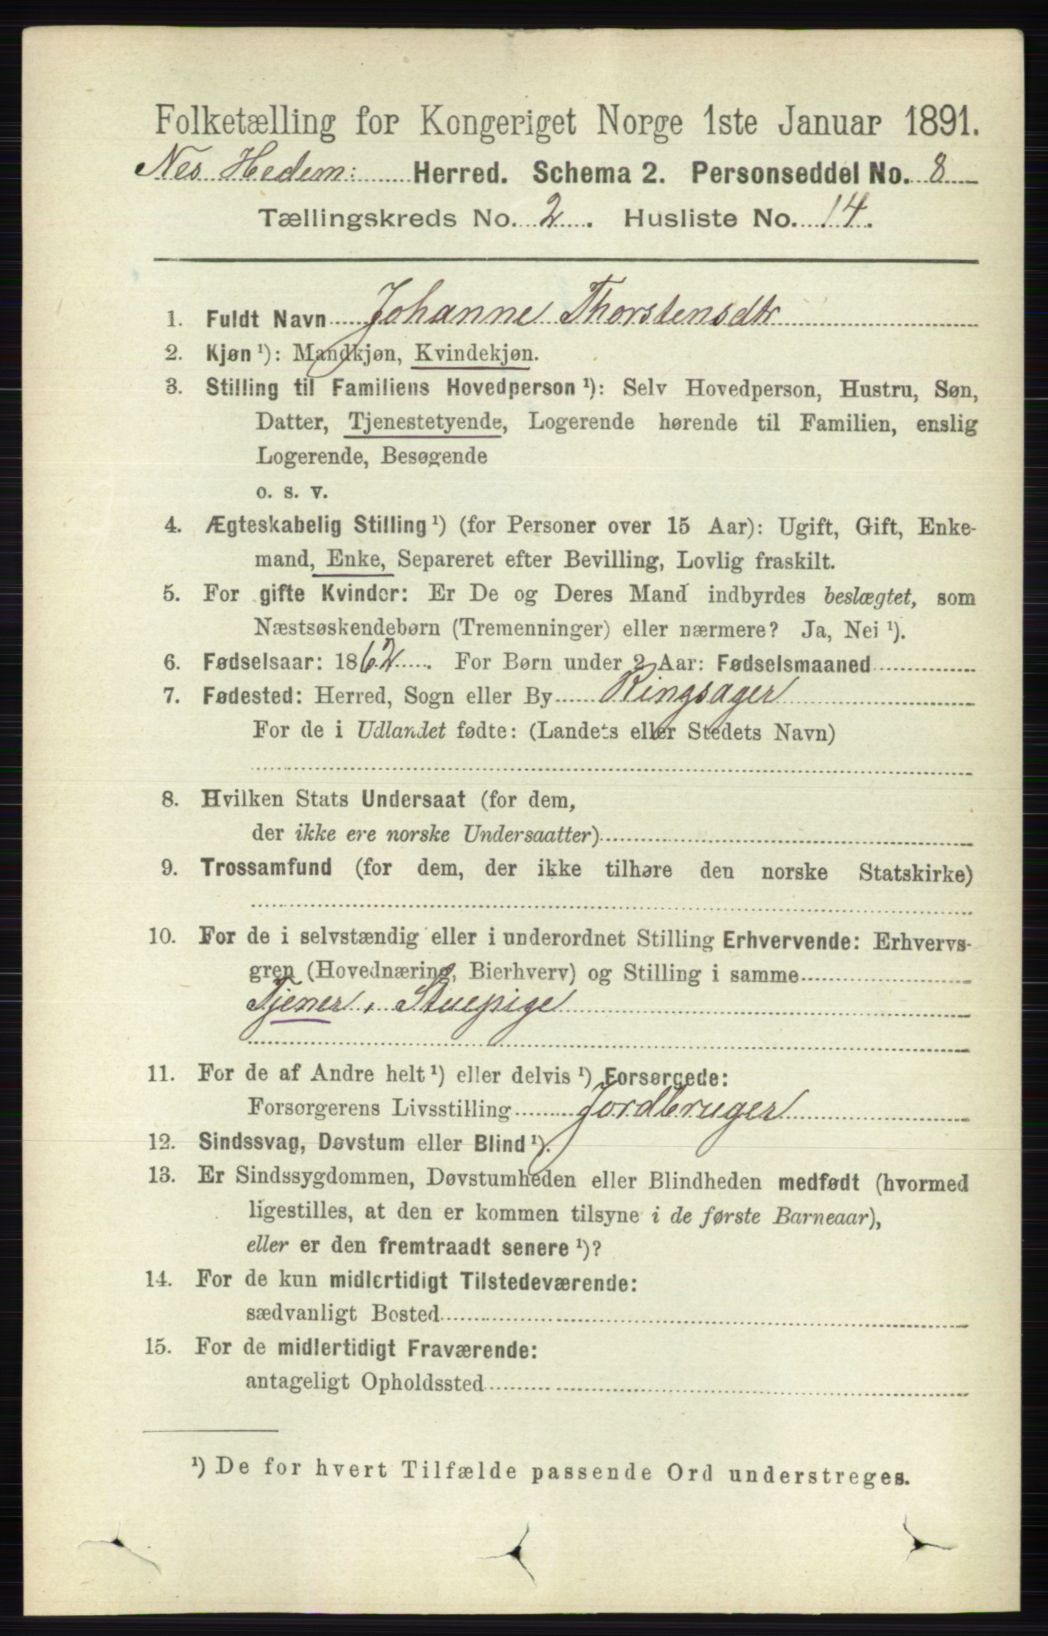 Folketælling for Kongeriget Norge 1ste Januar 1891.
Nes Hedem: Herred. Schema 2. Personseddel No. 8
Tællingskreds No. 2. Husliste No. 14.
1. Fuldt Navn Johanne Thorstensdtr
2. Kjøn ¹): Mandkjøn, Kvindekjøn.
3. Stilling til Familiens Hovedperson ¹): Selv Hovedperson, Hustru, Søn,
Datter, Tjenestetyende, Logerende hørende til Familien, enslig
Logerende, Besøgende
o. s. v.
4. Ægteskabelig Stilling ¹) (for Personer over 15 Aar): Ugift, Gift, Enke-
mand, Enke, Separeret efter Bevilling, Lovlig fraskilt.
5. For gifte Kvinder: Er De og Deres Mand indbyrdes beslægtet, som
Næstsøskendebørn (Tremenninger) eller nærmere? Ja, Nei ¹).
6. Fødselsaar: 1862. For Børn under 2 Aar: Fødselsmaaned
7. Fødested: Herred, Sogn eller By Ringsager
For de i Udlandet fødte: (Landets eller Stedets Navn)
8. Hvilken Stats Undersaat (for dem,
der ikke ere norske Undersaatter)
9. Trossamfund (for dem, der ikke tilhøre den norske Statskirke)
10. For de i selvstændig eller i underordnet Stilling Erhvervende: Erhvervs-
gren (Hovednæring, Bierhverv) og Stilling i samme
Tjener, Stuepige
11. For de af Andre helt ¹) eller delvis ¹) Forsørgede:
Forsørgerens Livsstilling Jordbruger
12. Sindssvag, Døvstum eller Blind ¹).
13. Er Sindssygdommen, Døvstumheden eller Blindheden medfødt (hvormed
ligestilles, at den er kommen tilsyne i de første Barneaar),
eller er den fremtraadt senere ¹)?
14. For de kun midlertidigt Tilstedeværende:
sædvanligt Bosted
15. For de midlertidigt Fraværende:
antageligt Opholdssted
¹) De for hvert Tilfælde passende Ord understreges.